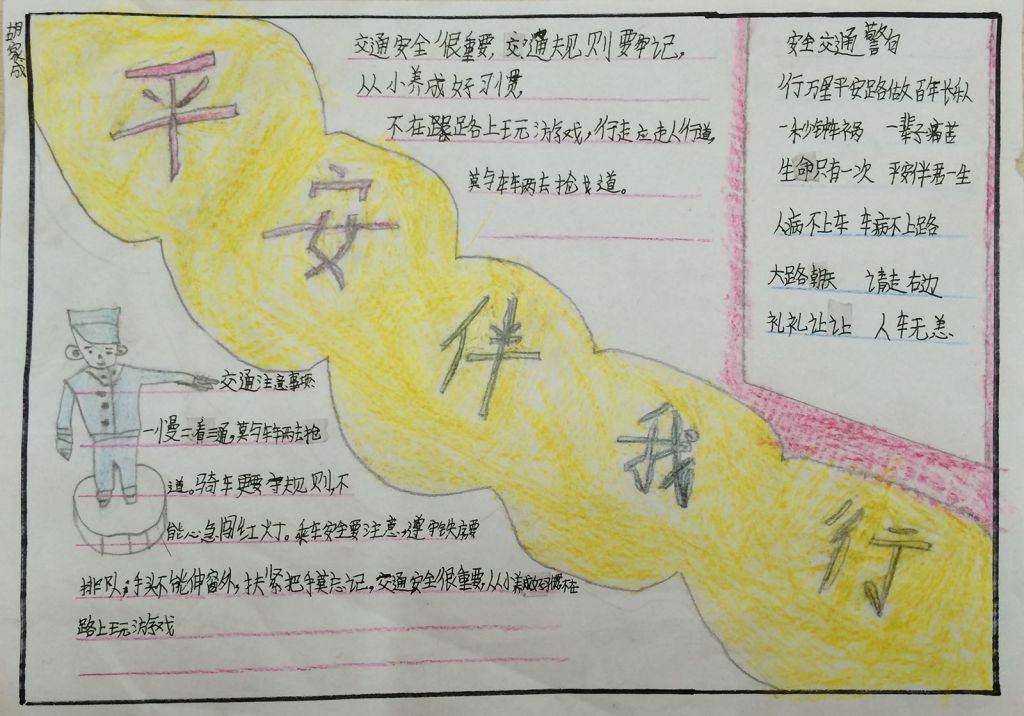 平安伴我行
交通安全很重要,交通规则要牢记,
从小养成好习惯
不在路上玩游戏,行走应走人行道,
莫与车辆去抢道。
安全交通警句
行万里平安路做百年长
一秒钟车祸 一辈子痛苦
生命只有一次 平安伴君一生
人病不上车 车病不上路
大路朝天 请走右边
礼礼让让 人车无恙
交通注意事项
一慢二看三通,莫与车辆去抢
道。骑车更要守规则,不
能心急闯红灯。乘车安全要注意,遵守秩序要
排队;手头不能伸窗外,扶紧把手莫忘记,交通安全很重要,从小养成好习惯不在
路上玩游戏